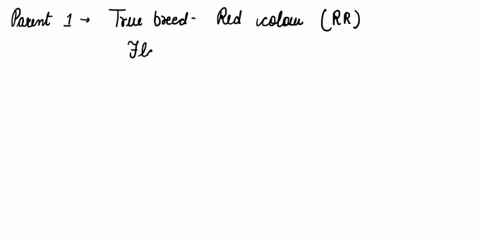 Parent 1 → True breed - Red colour (RR)
Fl